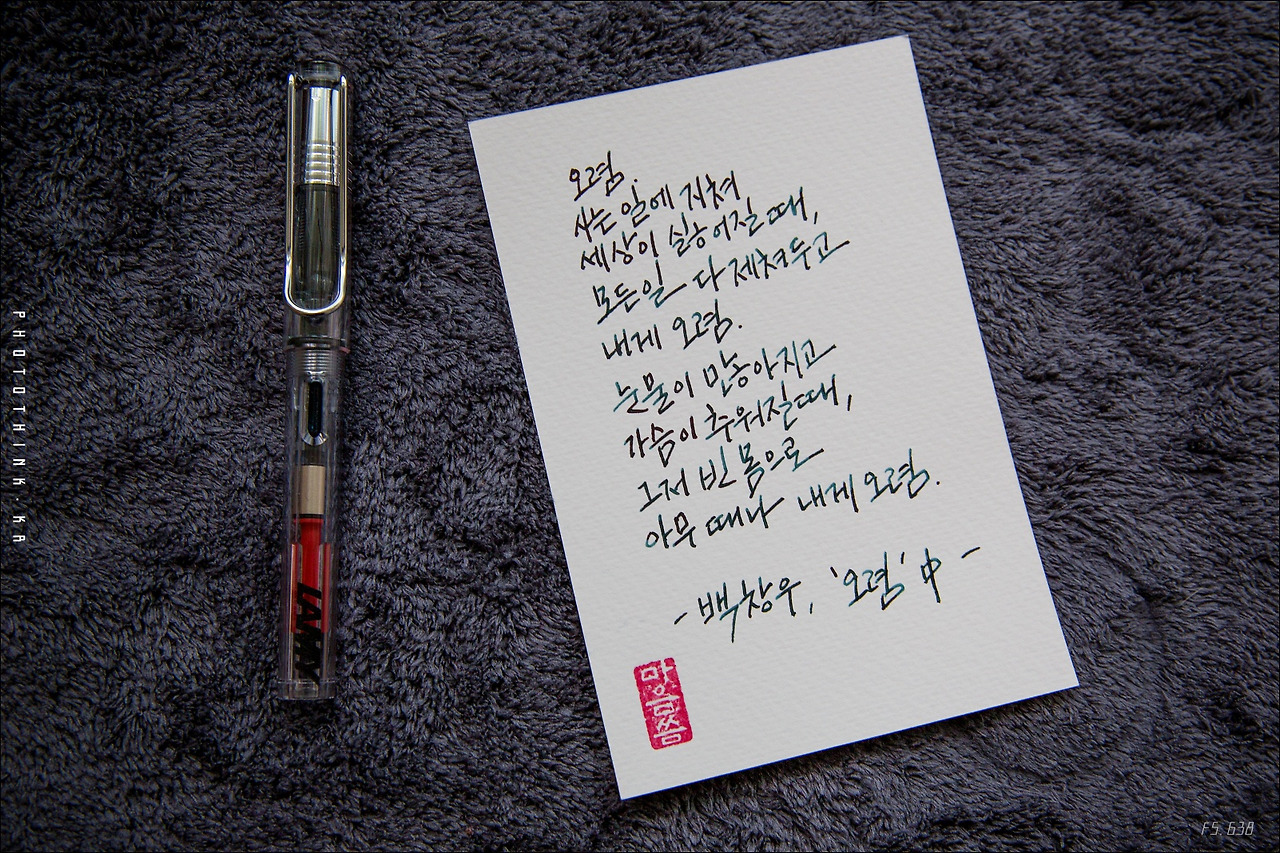 오렴.
사는 일에 지쳐
세상이 싫어질 때,
모든일 다 제쳐두고
내게 오렴.
눈물이 많아지고
가슴이 추워질 때,
그저 빈 몸으로
아무 때나 내게 오렴.
- 백창우, '오렴' 中 -
LAMY
PHOTOTHINK·KA
F5.638